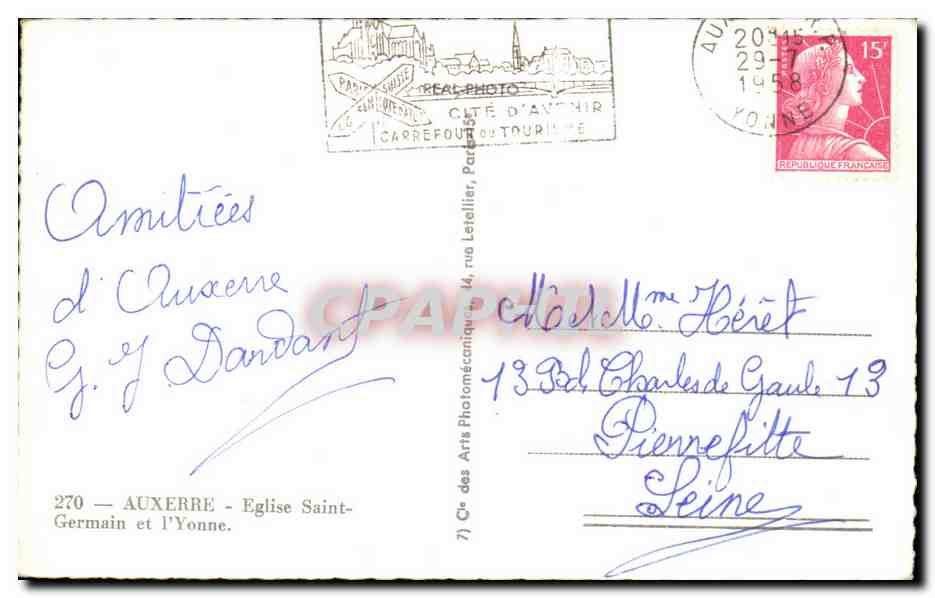 PARIS SUISSE
REAL-PHOTO
CITÉ D'AVENIR
CARREFOUR DU TOURISME
20H15
29-7
1958
YONNE
15F
POSTES
REPUBLIQUE FRANÇAISE
Amitiées
d'Auxerre
G. J Dardant
CPARHTI
M et Mme Hérêt
13 Bd. Charles de Gaule 13
Pierrefitte
Seine
270 — AUXERRE - Eglise Saint-
Germain et l'Yonne.
7) Cie des Arts Photomécaniques, 44, rue Letellier, Paris-15e